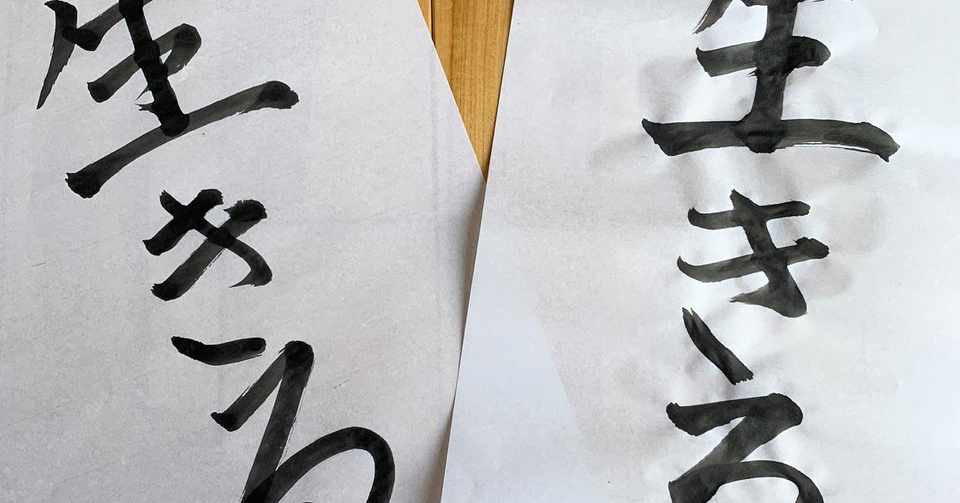 生きる
生きる